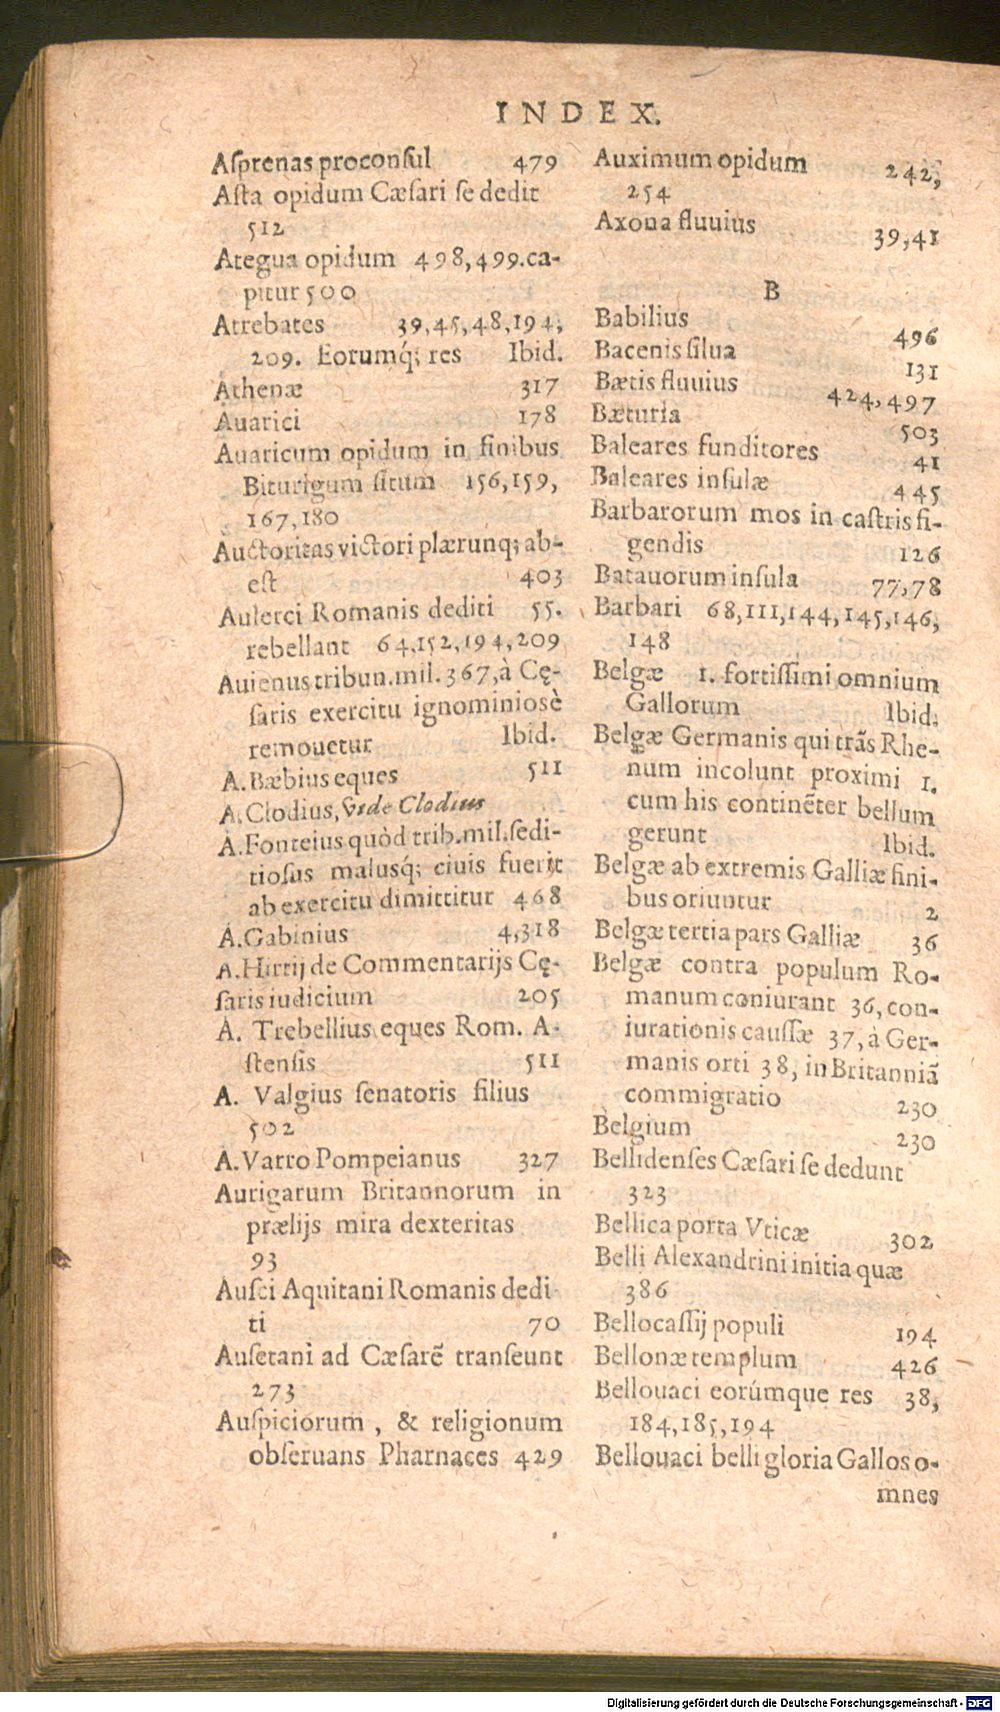 INDEX.
Aſprenas proconſul 479
Aſta opidum Cæſari ſe dedit
512
Ategua opidum 498,499.ca-
pitur 500
Atrebates 39,45,48,194,
209. Eorumq́; res Ibid.
Athenæ 317
Auarici 178
Auaricum opidum in finibus
Biturigum ſitum 156,159,
167,180
Auctoritas victori plærunq; ab-
eſt 403
Aulerci Romanis dediti 55.
rebellant 64,152,194,209
Auienus tribun.mil.367,à Cę-
ſaris exercitu ignominiosè
remouetur Ibid.
A.Bæbius eques 511
A.Clodius, vide Clodius
A.Fonteius quòd trib.mil.ſedi-
tioſus malusq́; ciuis fuerit
ab exercitu dimittitur 468
A.Gabinius 4,318
A.Hirtij de Commentarijs Cę-
ſaris iudicium 205
A. Trebellius eques Rom. A-
ſtenſis 511
A. Valgius ſenatoris filius
502
A.Varro Pompeianus 327
Aurigarum Britannorum in
prælijs mira dexteritas
93
Auſci Aquitani Romanis dedi-
ti 70
Auſetani ad Cæſarē tranſeunt
273
Auſpiciorum , & religionum
obſeruans Pharnaces 429
Auximum opidum 242,
254
Axona fluuius 39,41
B
Babilius 496
Bacenis ſilua 131
Bætis fluuius 424,497
Bæturia 503
Baleares funditores 41
Baleares inſulæ 445
Barbarorum mos in caſtris fi-
gendis 126
Batauorum inſula 77,78
Barbari 68,111,144,145,146,
148
Belgæ 1. fortiſſimi omnium
Gallorum Ibid.
Belgæ Germanis qui trãs Rhe-
num incolunt proximi 1.
cum his continẽter bellum
gerunt Ibid.
Belgæ ab extremis Galliæ fini-
bus oriuntur 2
Belgæ tertia pars Galliæ 36
Belgæ contra populum Ro-
manum coniurant 36, con-
iurationis cauſſæ 37, à Ger-
manis orti 38, in Britanniã
commigratio 230
Belgium 230
Bellidenſes Cæſari ſe dedunt
323
Bellica porta Vticæ 302
Belli Alexandrini initia quæ
386
Bellocaſſij populi 194
Bellonæ templum 426
Bellouaci eorúmque res 38,
184,185,194
Bellouaci belli gloria Gallos o-
mnes
Digitalisierung gefördert durch die Deutsche Forschungsgemeinschaft - DFG